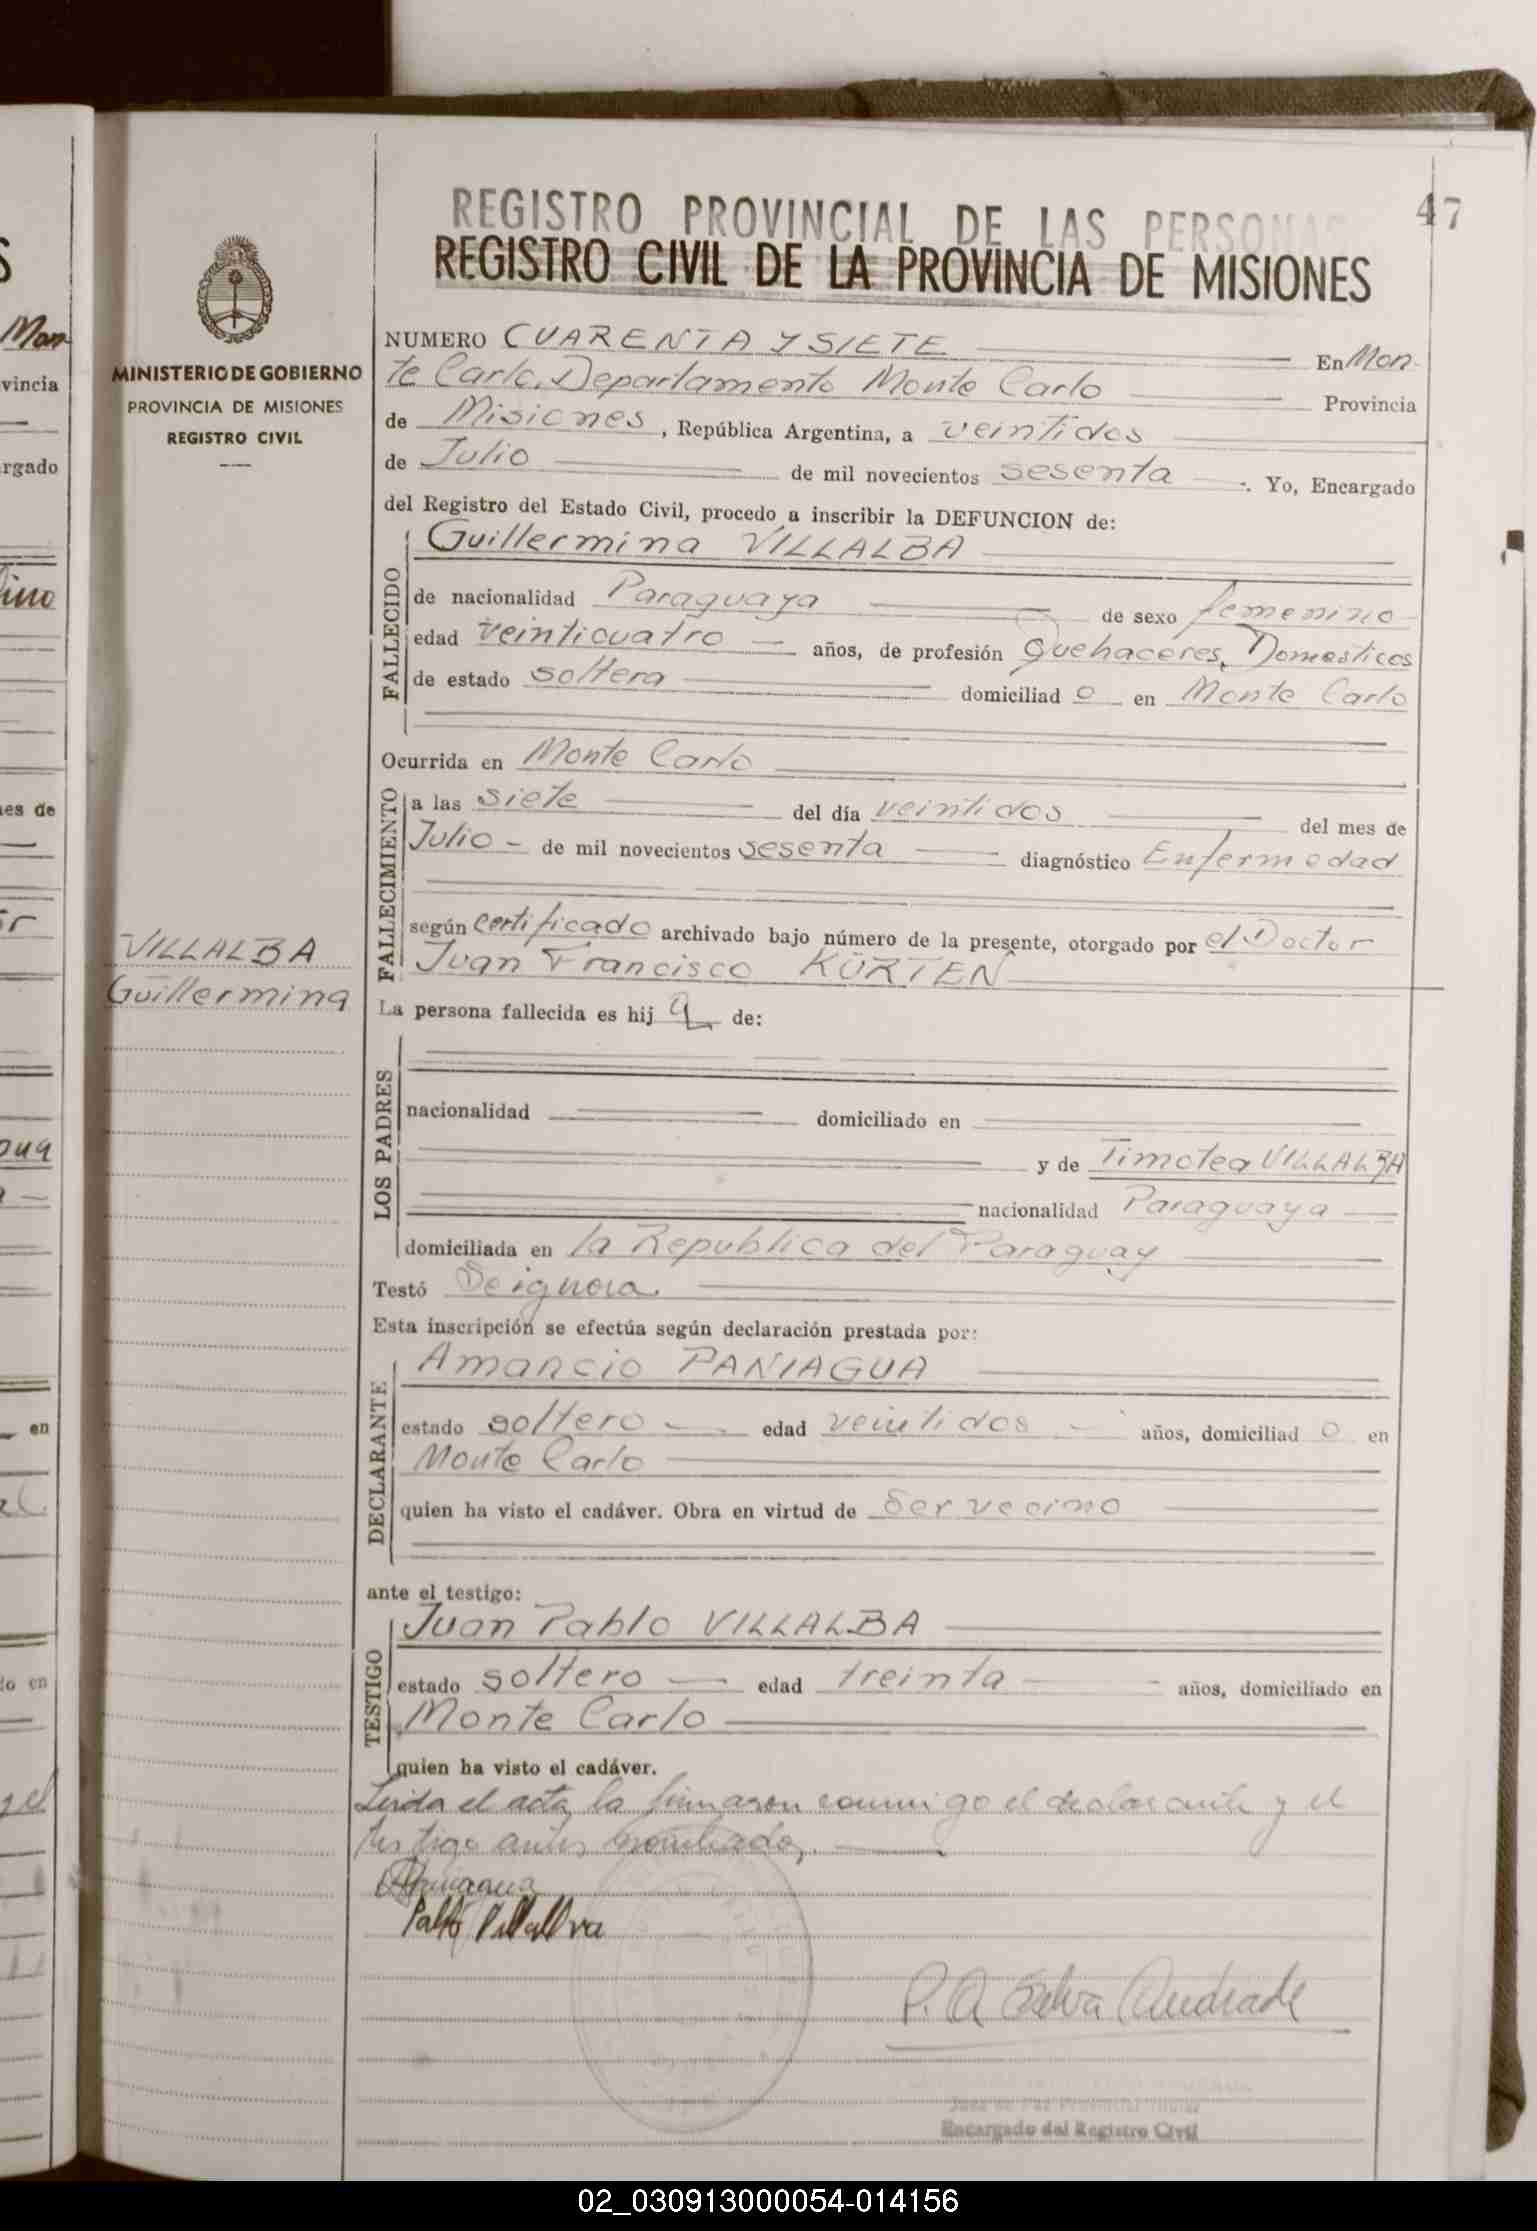 47
REGISTRO PROVINCIAL DE LAS PERSONAS
REGISTRO CIVIL DE LA PROVINCIA DE MISIONES
MINISTERIO DE GOBIERNO
PROVINCIA DE MISIONES
REGISTRO CIVIL
NUMERO CUARENTA Y SIETE En Mon-
te Carlo, Departamento Monte Carlo Provincia
de Misiones, República Argentina, a veintidos
de Julio de mil novecientos sesenta. Yo, Encargado
del Registro del Estado Civil, procedo a inscribir la DEFUNCION de:
FALLECIDO
Guillermina VILLALBA
de nacionalidad Paraguaya de sexo femenino
edad veinticuatro años, de profesión Quehaceres Domesticos
de estado soltera domiciliad o en Monte Carlo
Ocurrida en Monte Carlo
FALLECIMIENTO
a las siete del día veintidos del mes de
Julio - de mil novecientos sesenta diagnóstico Enfermedad
según certificado archivado bajo número de la presente, otorgado por el Doctor
Juan Francisco KÜRTEN
VILLALBA
Guillermina
La persona fallecida es hij a de:
LOS PADRES
nacionalidad domiciliado en
y de Timotea VILLALBA
nacionalidad Paraguaya
domiciliada en la Republica del Paraguay
Testó Se ignora.
Esta inscripción se efectúa según declaración prestada por:
DECLARANTE
Amancio PANIAGUA
estado soltero edad veintidos años, domiciliad o en
Monte Carlo
quien ha visto el cadáver. Obra en virtud de Ser vecino
ante el testigo:
TESTIGO
Juan Pablo VILLALBA
estado soltero edad treinta años, domiciliado en
Monte Carlo
quien ha visto el cadáver.
Leida el acta, la firmaron conmigo el declarante y el
testigo antes nombrado.
Paniagua
Pablo Villalva
P. A. Silva Andrade
Juez de Paz Provincial Titular
Encargado del Registro Civil
02_030913000054-014156